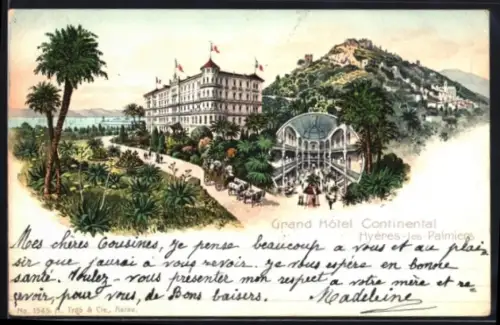 Grand Hôtel Continental
Hyères-les Palmiers
Mes chères Cousines, je pense beaucoup a vous et au plai-
sir que j'aurai à vous revoir. Je vous espère en bonne
santé. Voulez-vous présenter mon respect a votre mère et re-
cevoir, pour vous, de Bons baisers. Madeleine
No. 1545.